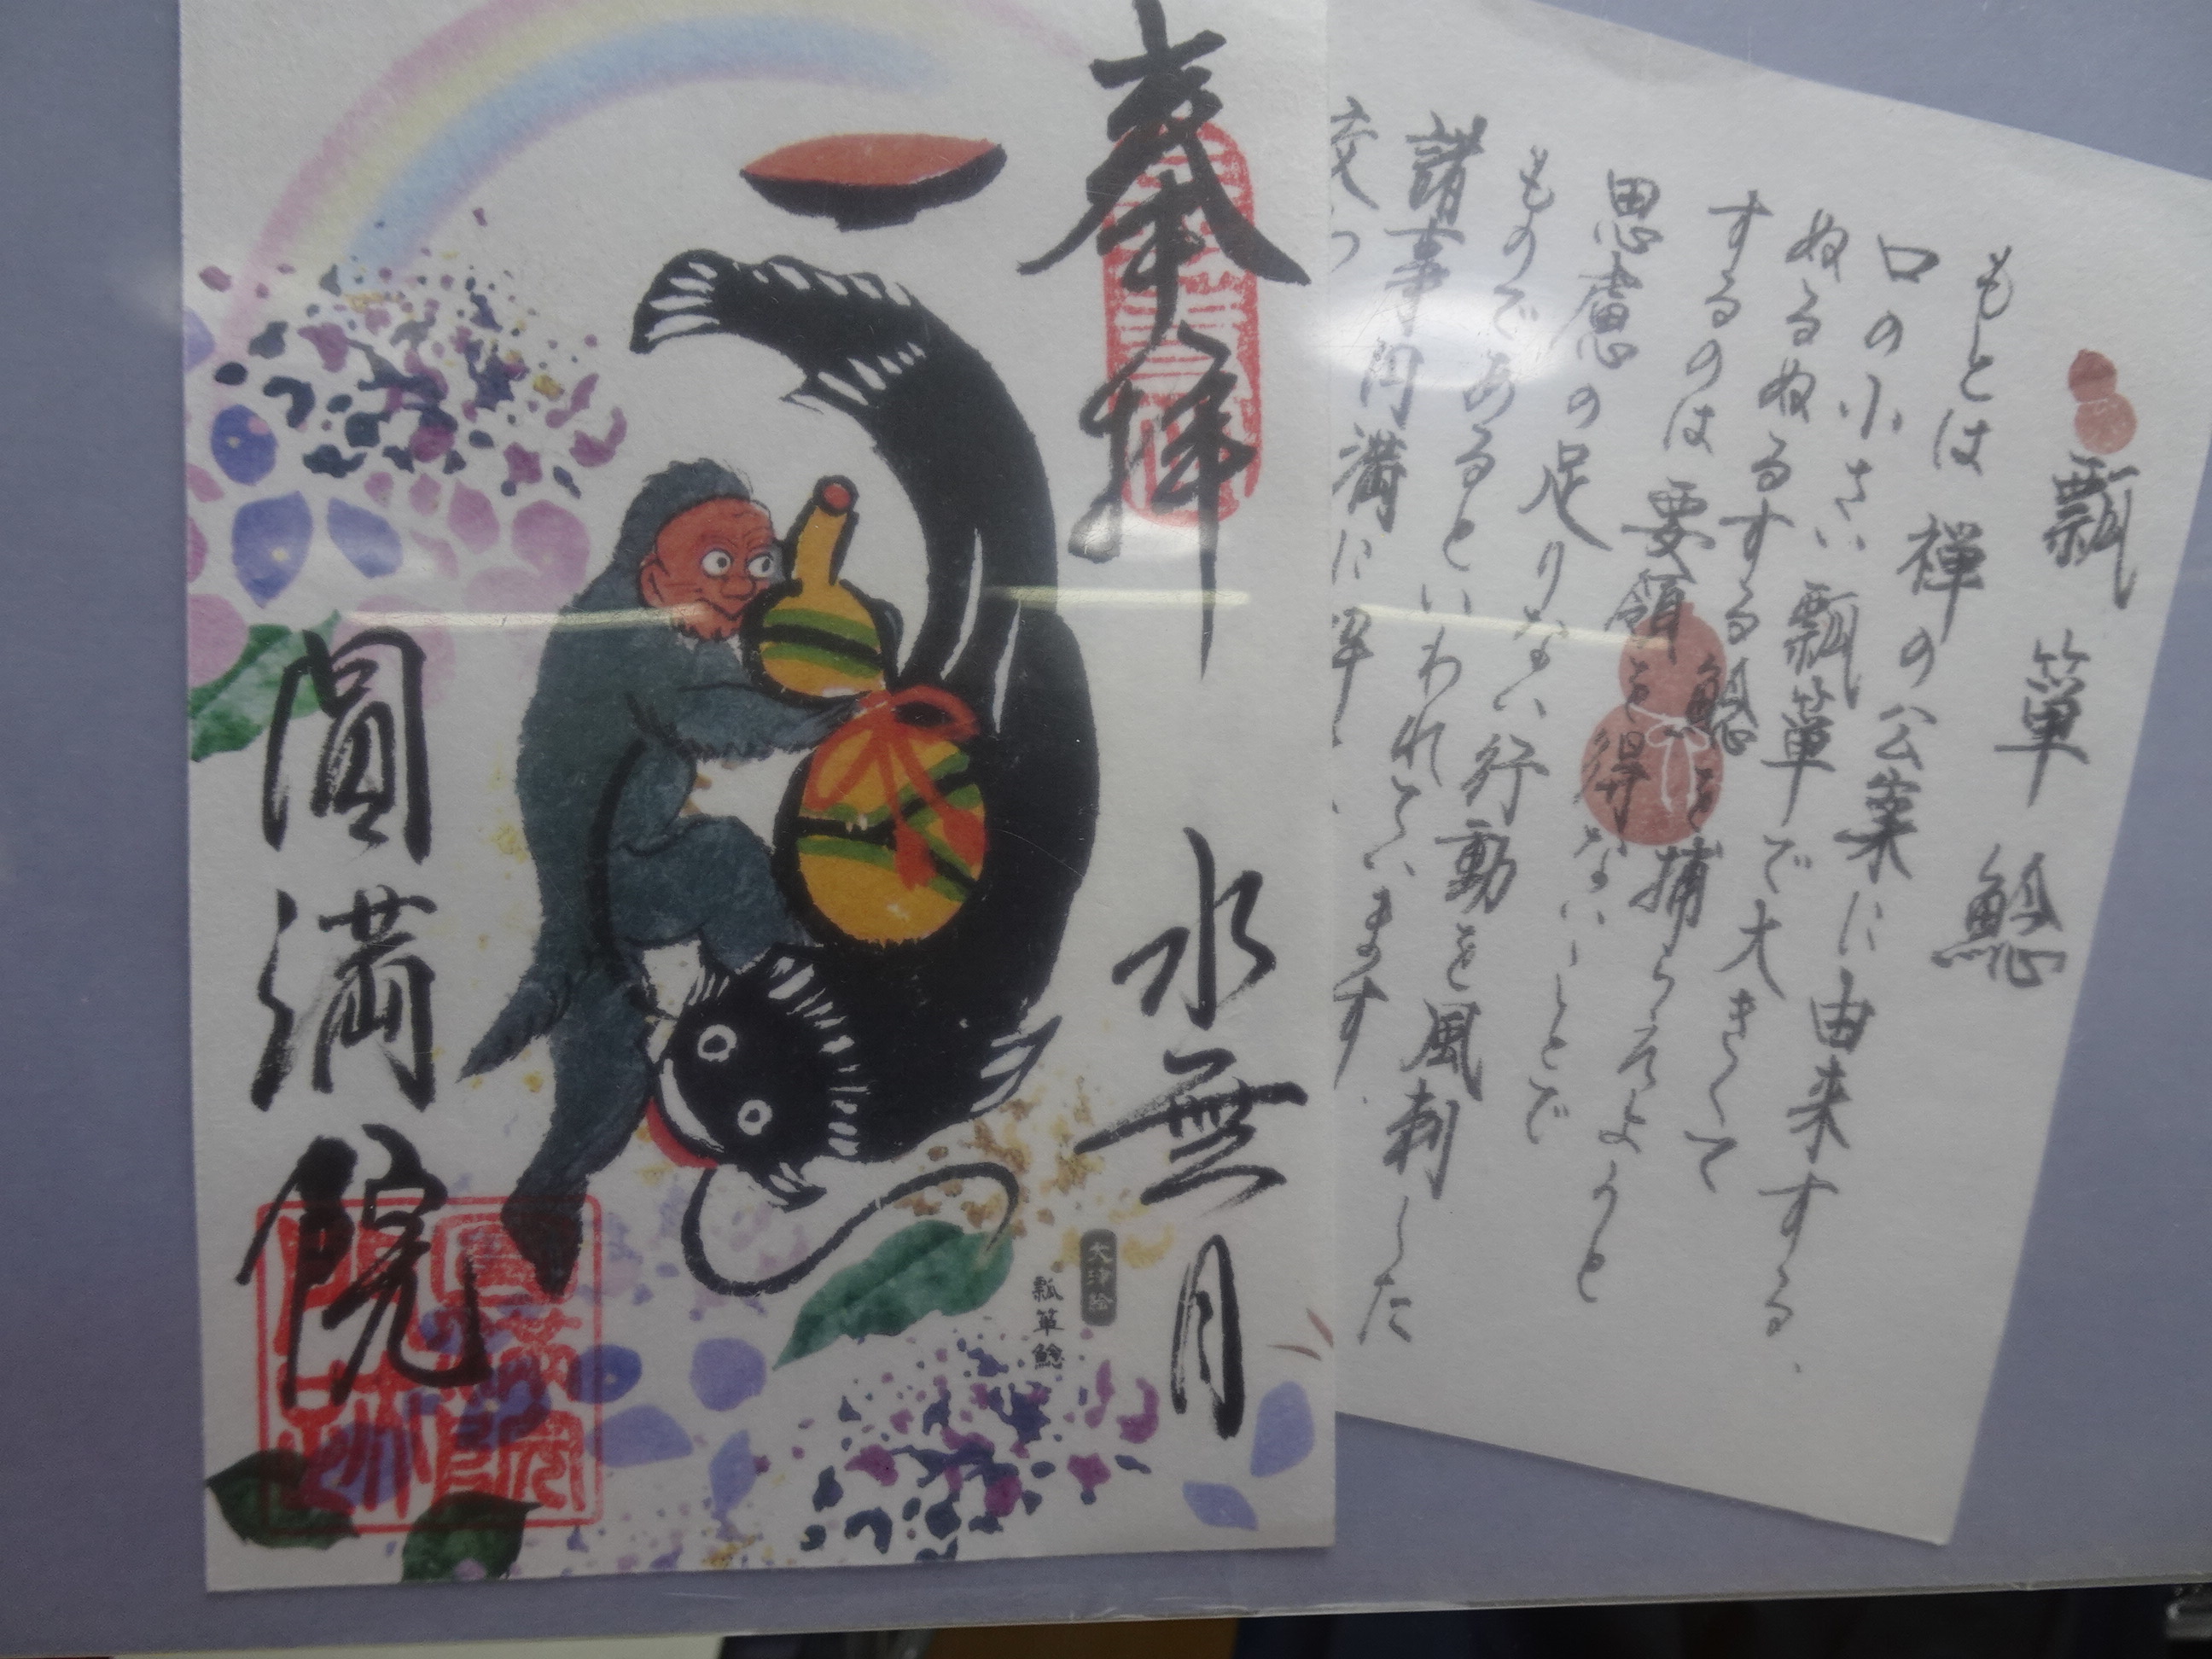 瓢箪鯰
もとは禅の公案に由来する、
口の小さい瓢箪で大きくて
ぬるぬるする鯰を捕らえようと
するのは要領を得ないことで
思慮の足りない行動を風刺した
ものであるといわれています
諸事円満に
奉拝 水無月
大津絵
瓢箪鯰
圓満院